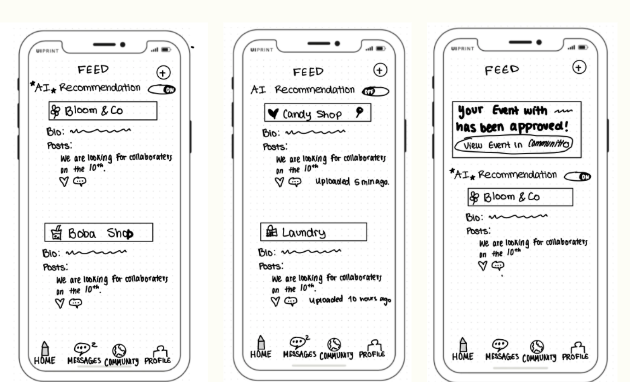 UIPRINT
FEED
+
*AI* Recommendation ON
Bloom & Co
Bio:
Posts:
We are looking for collaboraters
on the 10th.
Boba Shop
Bio:
Posts:
We are looking for collaboraters
on the 10th.
2
HOME MESSAGES COMMUNITY PROFILE
UIPRINT
FEED
+
AI Recommendation
Candy Shop
Bio:
Posts:
We are looking for collaboraters
on the 10th.
Uploaded 5 min ago.
Laundry
Bio:
Posts:
We are looking for collaboraters
on the 10th.
Uploaded 10 hours ago
2
HOME MESSAGES COMMUNITY PROFILE
UIPRINT
FEED
+
Your Event with
has been approved!
View Event in Communitto
*AI* Recommendation ON
Bloom & Co
Bio:
Posts:
We are looking for collaboraters
on the 10th.
HOME MESSAGES COMMUNITY PROFILE